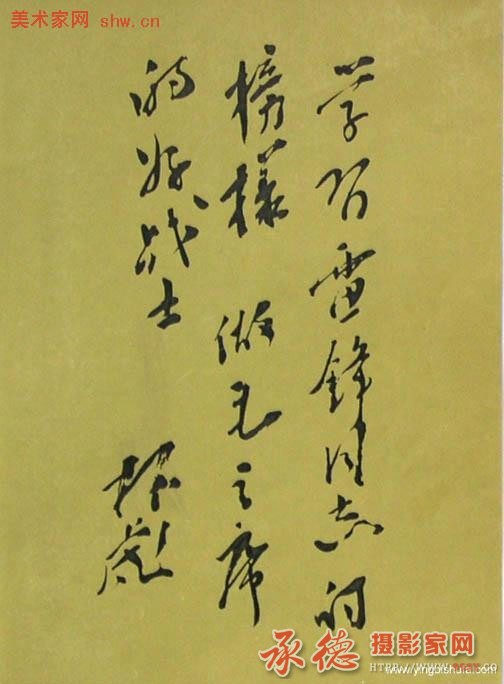 美术家网 shw.cn
学习雷锋同志的
榜樣 做毛主席
的好战士
林彪
承德摄影家网
www.yingbishufa.com